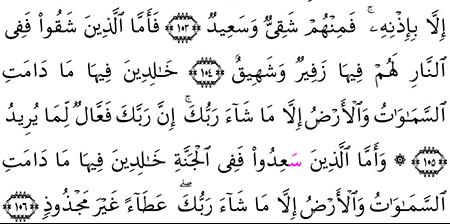 إِلَّا بِإِذْنِهِۦۚ فَمِنْهُمْ شَقِىٌّ وَسَعِيدٌ ﴿١٠٣﴾ فَأَمَّا ٱلَّذِينَ شَقُوا۟ فَفِى
ٱلنَّارِ لَهُمْ فِيهَا زَفِيرٌ وَشَهِيقٌ ﴿١٠٤﴾ خَٰلِدِينَ فِيهَا مَا دَامَتِ
ٱلسَّمَٰوَٰتُ وَٱلْأَرْضُ إِلَّا مَا شَآءَ رَبُّكَۚ إِنَّ رَبَّكَ فَعَّالٌ لِّمَا يُرِيدُ
﴿١٠٥﴾ ۞ وَأَمَّا ٱلَّذِينَ سَعِدُوا۟ فَفِى ٱلْجَنَّةِ خَٰلِدِينَ فِيهَا مَا دَامَتِ
ٱلسَّمَٰوَٰتُ وَٱلْأَرْضُ إِلَّا مَا شَآءَ رَبُّكَۖ عَطَآءً غَيْرَ مَجْذُوذٍ ﴿١٠٦﴾